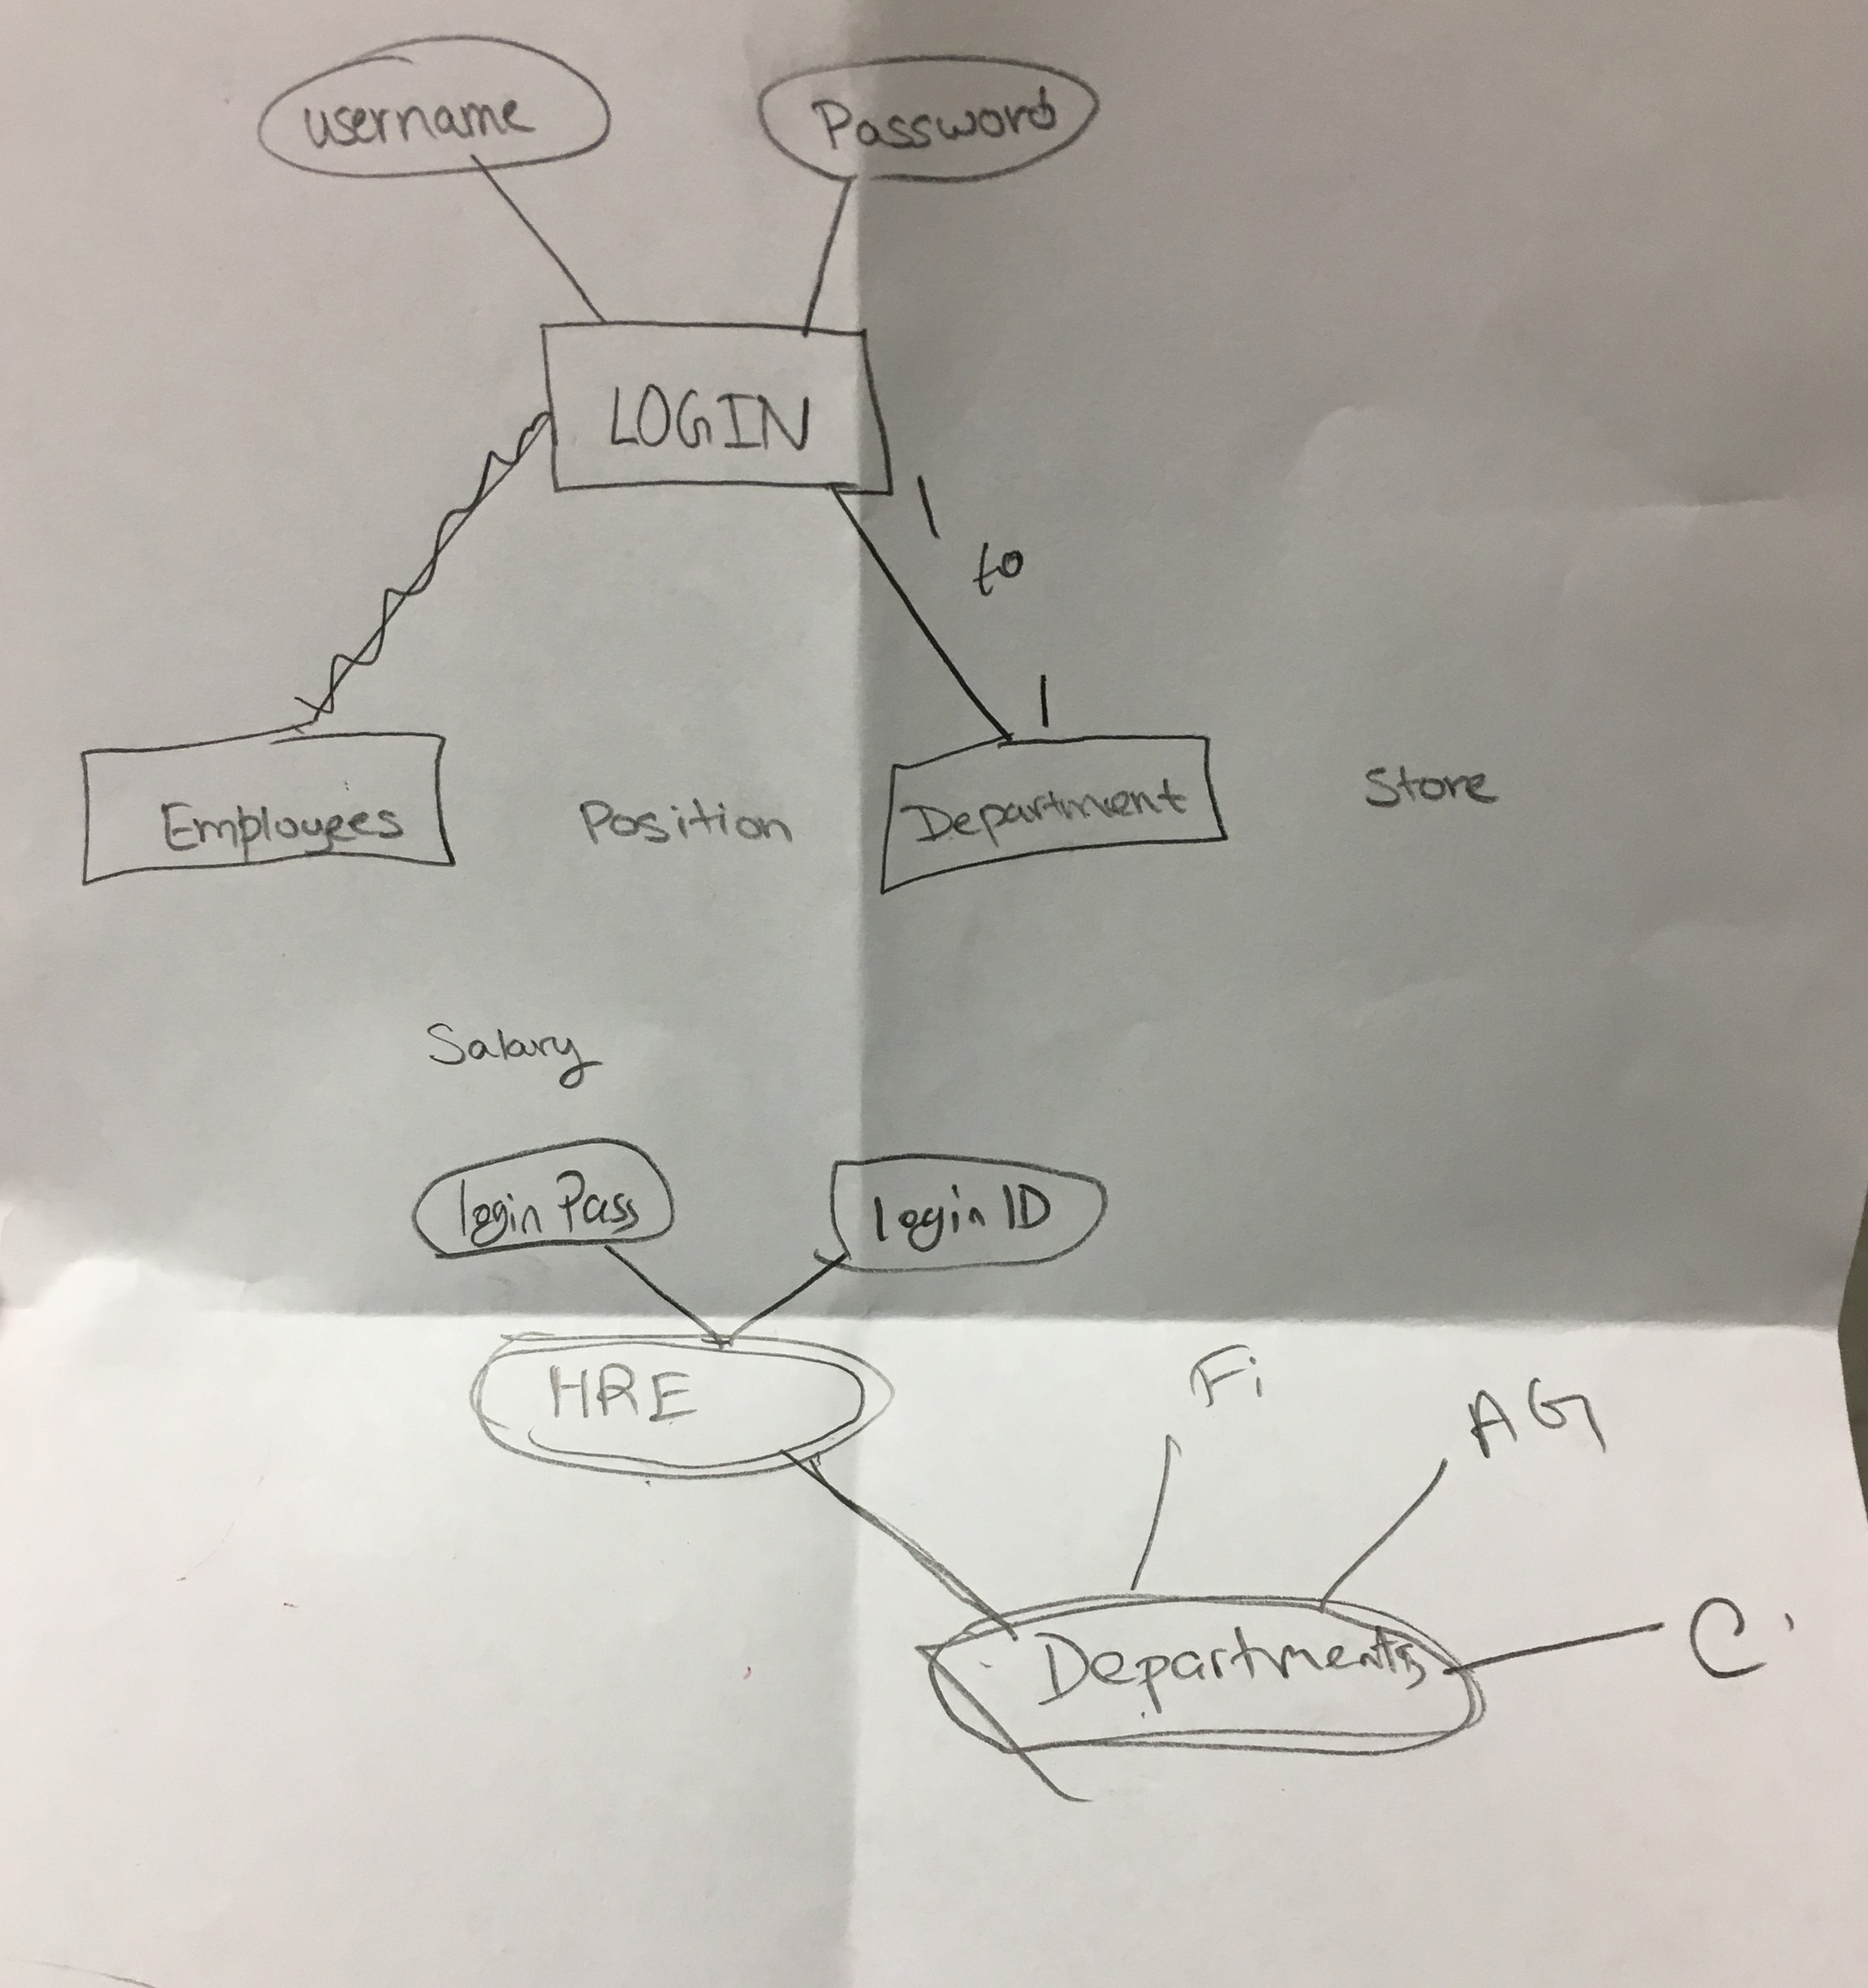 username
Password
LOGIN
1
to
1
Employees
Position
Department
Store
Salary
login Pass
login ID
HRE
Fi
AG
Departments
C